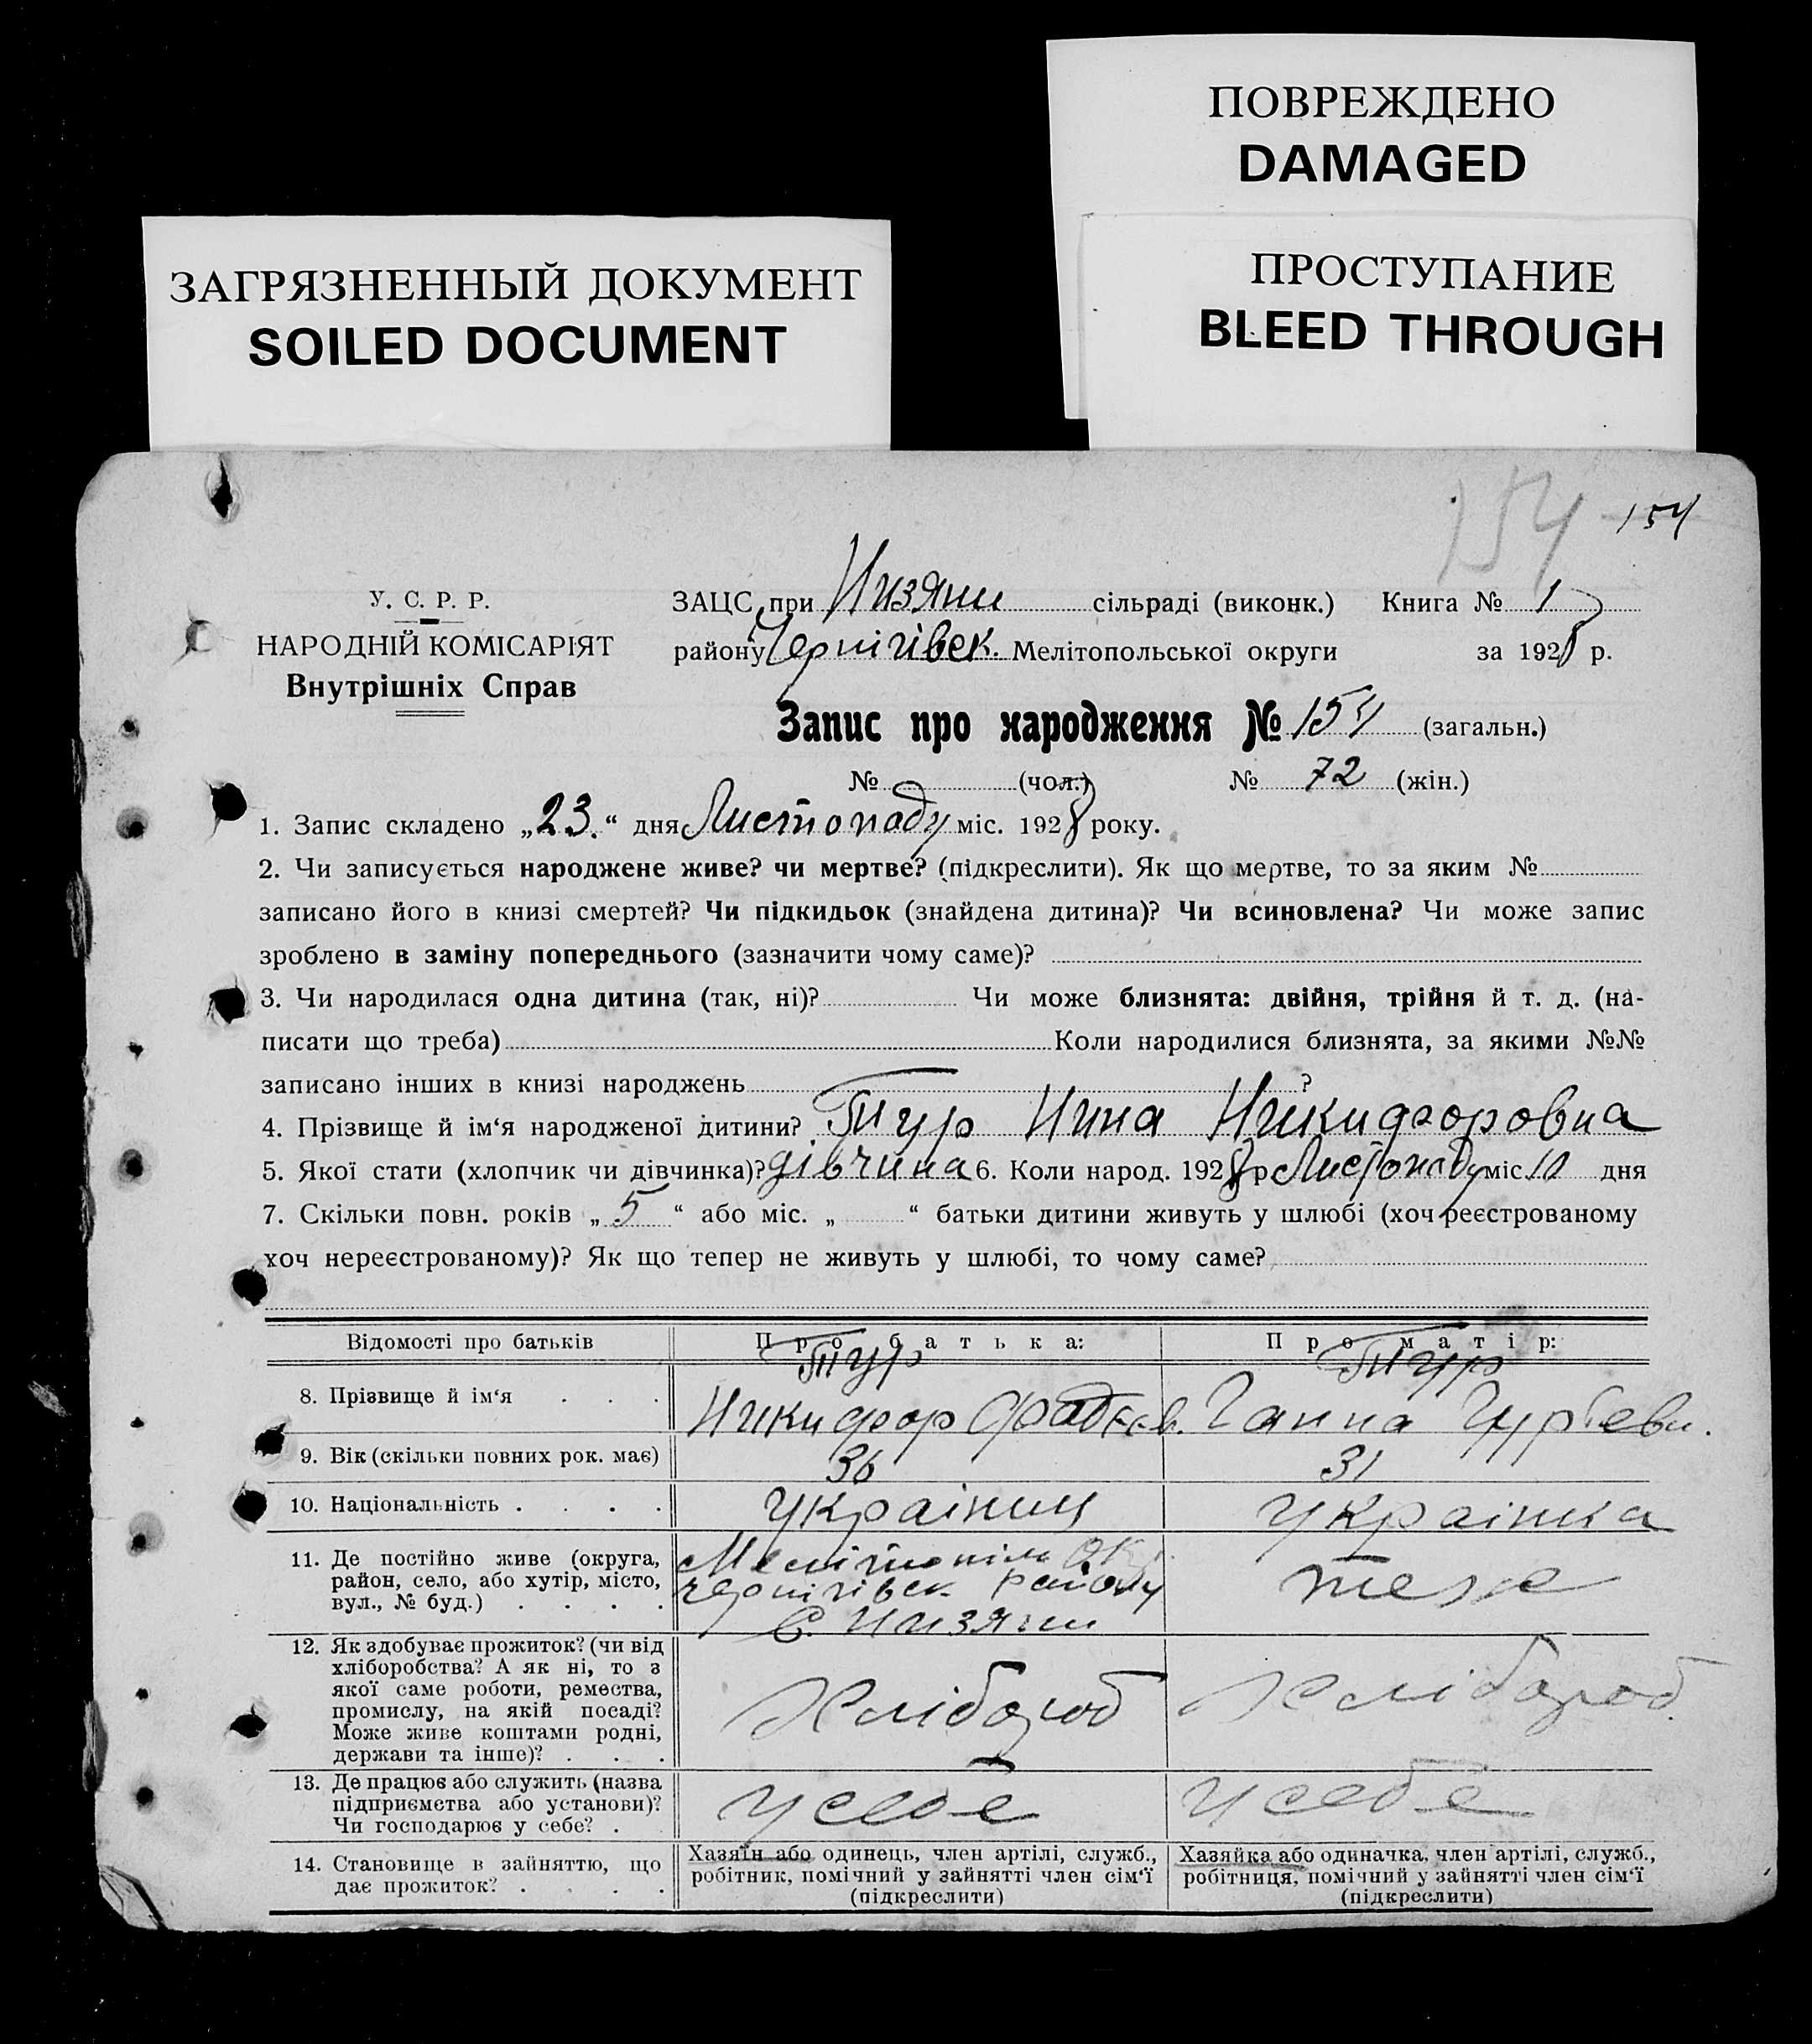 ПОВРЕЖДЕНО
DAMAGED
ЗАГРЯЗНЕННЫЙ ДОКУМЕНТ
SOILED DOCUMENT
ПРОСТУПАНИЕ
BLEED THROUGH
154 154
У. С. Р. Р.
НАРОДНІЙ КОМІСАРІЯТ
Внутрішніх Справ
ЗАЦС при Низяни сільраді (виконк.) Книга № 1
району Чернігівск. Мелітопольської округи за 1928 р.
Запис про народження № 154 (загальн.)
№ (чол.) № 72 (жін.)
1. Запис складено „23.“ дня Листопаду міс. 1928 року.
2. Чи записується народжене живе? чи мертве? (підкреслити). Як що мертве, то за яким №
записано його в книзі смертей? Чи підкидьок (знайдена дитина)? Чи всиновлена? Чи може запис
зроблено в заміну попереднього (зазначити чому саме)?
3. Чи народилася одна дитина (так, ні)? Чи може близнята: двійня, трійня й т. д. (на-
писати що треба) Коли народилися близнята, за якими №№
записано інших в книзі народжень ?
4. Прізвище й ім‘я народженої дитини? Тур Нина Никифоровна
5. Якої стати (хлопчик чи дівчинка)? дівчина 6. Коли народ. 1928 р Листопаду міс. 10 дня
7. Скільки повн. років „ 5 “ або міс. „ “ батьки дитини живуть у шлюбі (хоч реєстрованому
хоч нереєстрованому)? Як що тепер не живуть у шлюбі, то чому саме?
Відомості про батьків Про батька: Про матір:
8. Прізвище й ім‘я Тур Никифор Фадєєв. Тур Ганна Гурієвн.
9. Вік (скільки повних рок. має) 36 31
10. Національність українець українка
11. Де постійно живе (округа, Мелітопіль окр.
район, село, або хутір, місто, чернігівск району теже
вул., № буд.) С. Низяни
12. Як здобуває прожиток? (чи від
хліборобства? А як ні, то з
якої саме роботи, ремества,
промислу, на якій посаді? Хлібороб Хлібороб.
Може живе коштами родні,
держави та інше)?
13. Де працює або служить (назва
підприємства або установи)? у себе у себе
Чи господарює у себе?
14. Становище в зайняттю, що Хазяїн або одинець, член артілі, служб., Хазяйка або одиначка, член артілі, служб.,
дає прожиток? робітник, помічний у зайнятті член сім‘ї робітниця, помічний у зайнятті член сім‘ї
(підкреслити) (підкреслити)